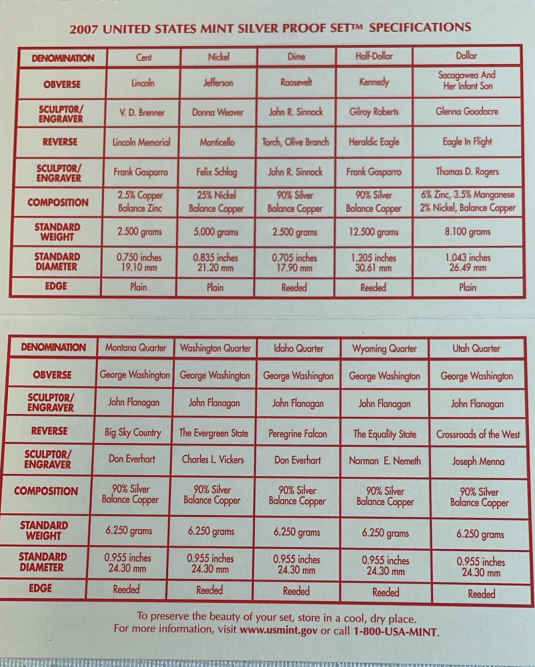 2007 UNITED STATES MINT SILVER PROOF SET™ SPECIFICATIONS
DENOMINATION Cent Nickel Dime Half-Dollar Dollar
OBVERSE Lincoln Jefferson Roosevelt Kennedy Sacagawea And Her Infant Son
SCULPTOR/ENGRAVER V. D. Brenner Donna Weaver John R. Sinnock Gilroy Roberts Glenna Goodacre
REVERSE Lincoln Memorial Monticello Torch, Olive Branch Heraldic Eagle Eagle In Flight
SCULPTOR/ENGRAVER Frank Gasparro Felix Schlag John R. Sinnock Frank Gasparro Thomas D. Rogers
COMPOSITION 2.5% Copper Balance Zinc 25% Nickel Balance Copper 90% Silver Balance Copper 90% Silver Balance Copper 6% Zinc, 3.5% Manganese 2% Nickel, Balance Copper
STANDARD WEIGHT 2.500 grams 5.000 grams 2.500 grams 12.500 grams 8.100 grams
STANDARD DIAMETER 0.750 inches 19.10 mm 0.835 inches 21.20 mm 0.705 inches 17.90 mm 1.205 inches 30.61 mm 1.043 inches 26.49 mm
EDGE Plain Plain Reeded Reeded Plain
DENOMINATION Montana Quarter Washington Quarter Idaho Quarter Wyoming Quarter Utah Quarter
OBVERSE George Washington George Washington George Washington George Washington George Washington
SCULPTOR/ENGRAVER John Flanagan John Flanagan John Flanagan John Flanagan John Flanagan
REVERSE Big Sky Country The Evergreen State Peregrine Falcon The Equality State Crossroads of the West
SCULPTOR/ENGRAVER Don Everhart Charles L. Vickers Don Everhart Norman E. Nemeth Joseph Menna
COMPOSITION 90% Silver Balance Copper 90% Silver Balance Copper 90% Silver Balance Copper 90% Silver Balance Copper 90% Silver Balance Copper
STANDARD WEIGHT 6.250 grams 6.250 grams 6.250 grams 6.250 grams 6.250 grams
STANDARD DIAMETER 0.955 inches 24.30 mm 0.955 inches 24.30 mm 0.955 inches 24.30 mm 0.955 inches 24.30 mm 0.955 inches 24.30 mm
EDGE Reeded Reeded Reeded Reeded Reeded
To preserve the beauty of your set, store in a cool, dry place.
For more information, visit www.usmint.gov or call 1-800-USA-MINT.